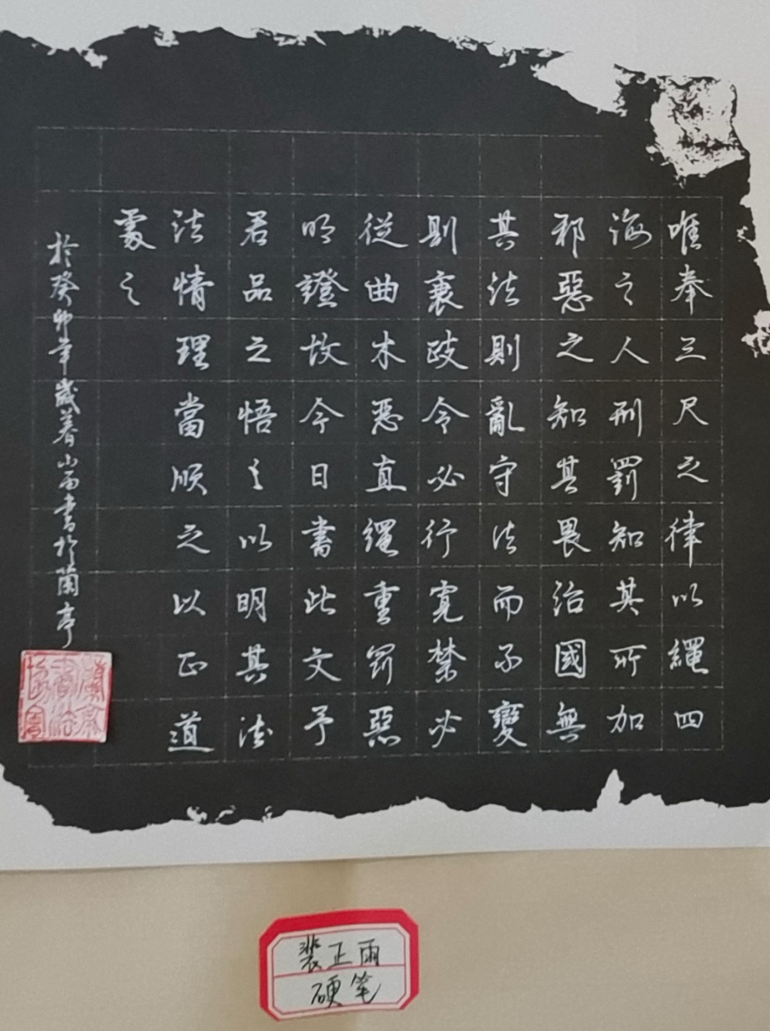 唯奉三尺之律以繩四
海之人刑罰知其所加
邪惡之知其畏治國無
其法則亂守法而不變
則衰歧令必行寬禁必
從曲木惡直繩重罰惡
明證故今日書此文予
君品之悟之以明其法
法情理當順之以正道
處之
於癸卯年歲暮山雨書於蘭亭
裴正雨
硬笔